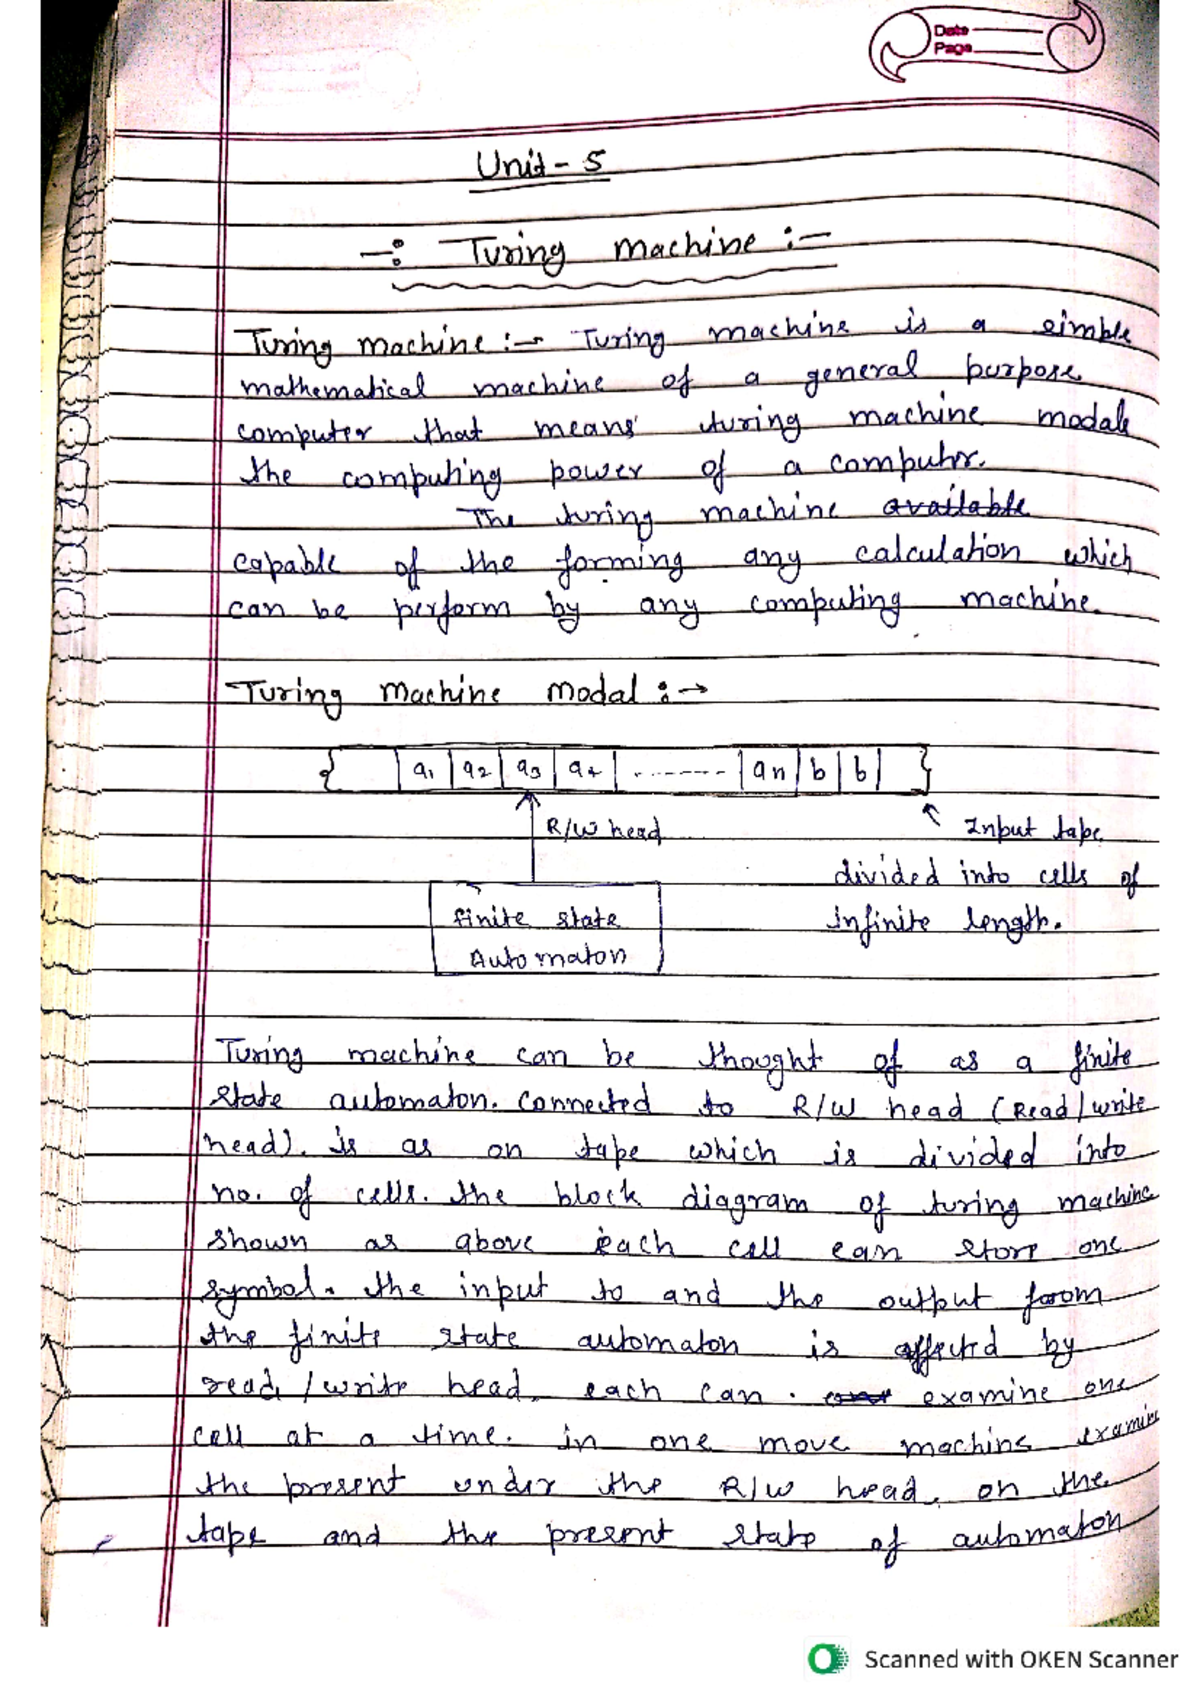 Date
Page
Unit - 5
-: Turing machine :-
Turing machine :- Turing machine is a simple
mathematical machine of a general purpose
computer that means turing machine modals
the computing power of a computer.
The turing machine available
capable of the forming any calculation which
can be perform by any computing machine.
Turing machine modal :→
a1 a2 a3 a4 ------- an b b
R/W head
Input tape
divided into cells of
infinite length.
finite state
Automaton
Turing machine can be thought of as a finite
state automaton. connected to R/W head (Read/write
head). is as on tape which is divided into
no. of cells. the block diagram of turing machine
shown as above each cell can store one
symbol. the input to and the output from
the finite state automaton is affected by
read/write head. each can examine one
cell at a time. in one move machine examine
the present under the R/W head. on the
tape and the present state of automaton
Scanned with OKEN Scanner